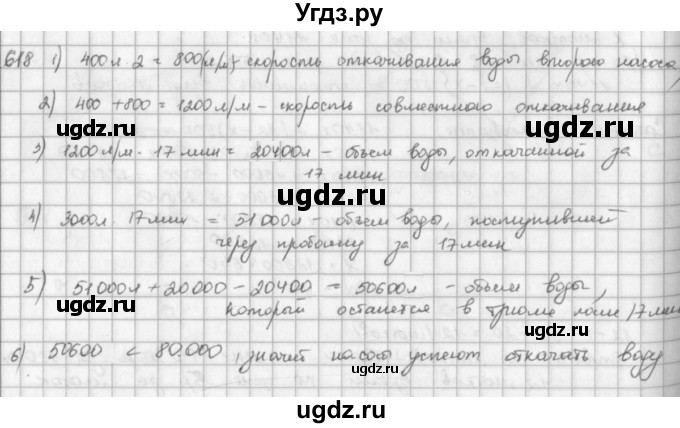 Угдз.ру
618 1) 400л · 2 = 800(л/м) скорость откачивания воды второго насоса,
2) 400 + 800 = 1200л/м – скорость совместного откачивания
ugdz.ru ugdz.ru
3) 1200л/м · 17мин = 20400л – объем воды, откачанной за
17 мин
ugdz.ru
4) 3000л · 17мин = 51000л – объем воды, поступившей
через пробоину за 17мин
ugdz.ru
5) 51000л + 20000 – 20400 = 50600л – объем воды,
который останется в трюме 17мин
ugdz.ru ugdz.ru
6) 50600 < 80.000, значит насосы успеют откачать воду
ugdz.ru
ugdz.ru